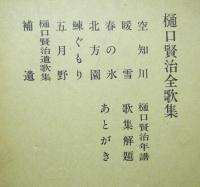 樋口賢治全歌集
空知川
暖雪
春の氷
北方園
鰊ぐもり
五月野
樋口賢治遺歌集
補遺
樋口賢治年譜
歌集解題
あとがき